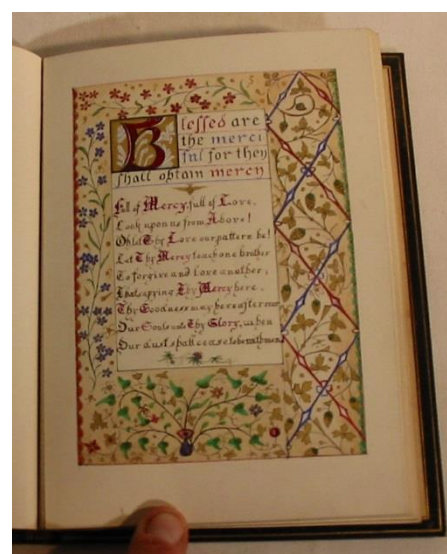 Blessed are
the merci
ful for they
shall obtain mercy
Full of Mercy, full of Love,
Look upon us from Above!
Oh let Thy Love our pattern be!
Let Thy Mercy teach one brother
To forgive and love another;
That copying Thy Mercy here,
Thy Goodness may hereafter rear
Our Souls unto Thy Glory, when
Our dust shall cease to be with men